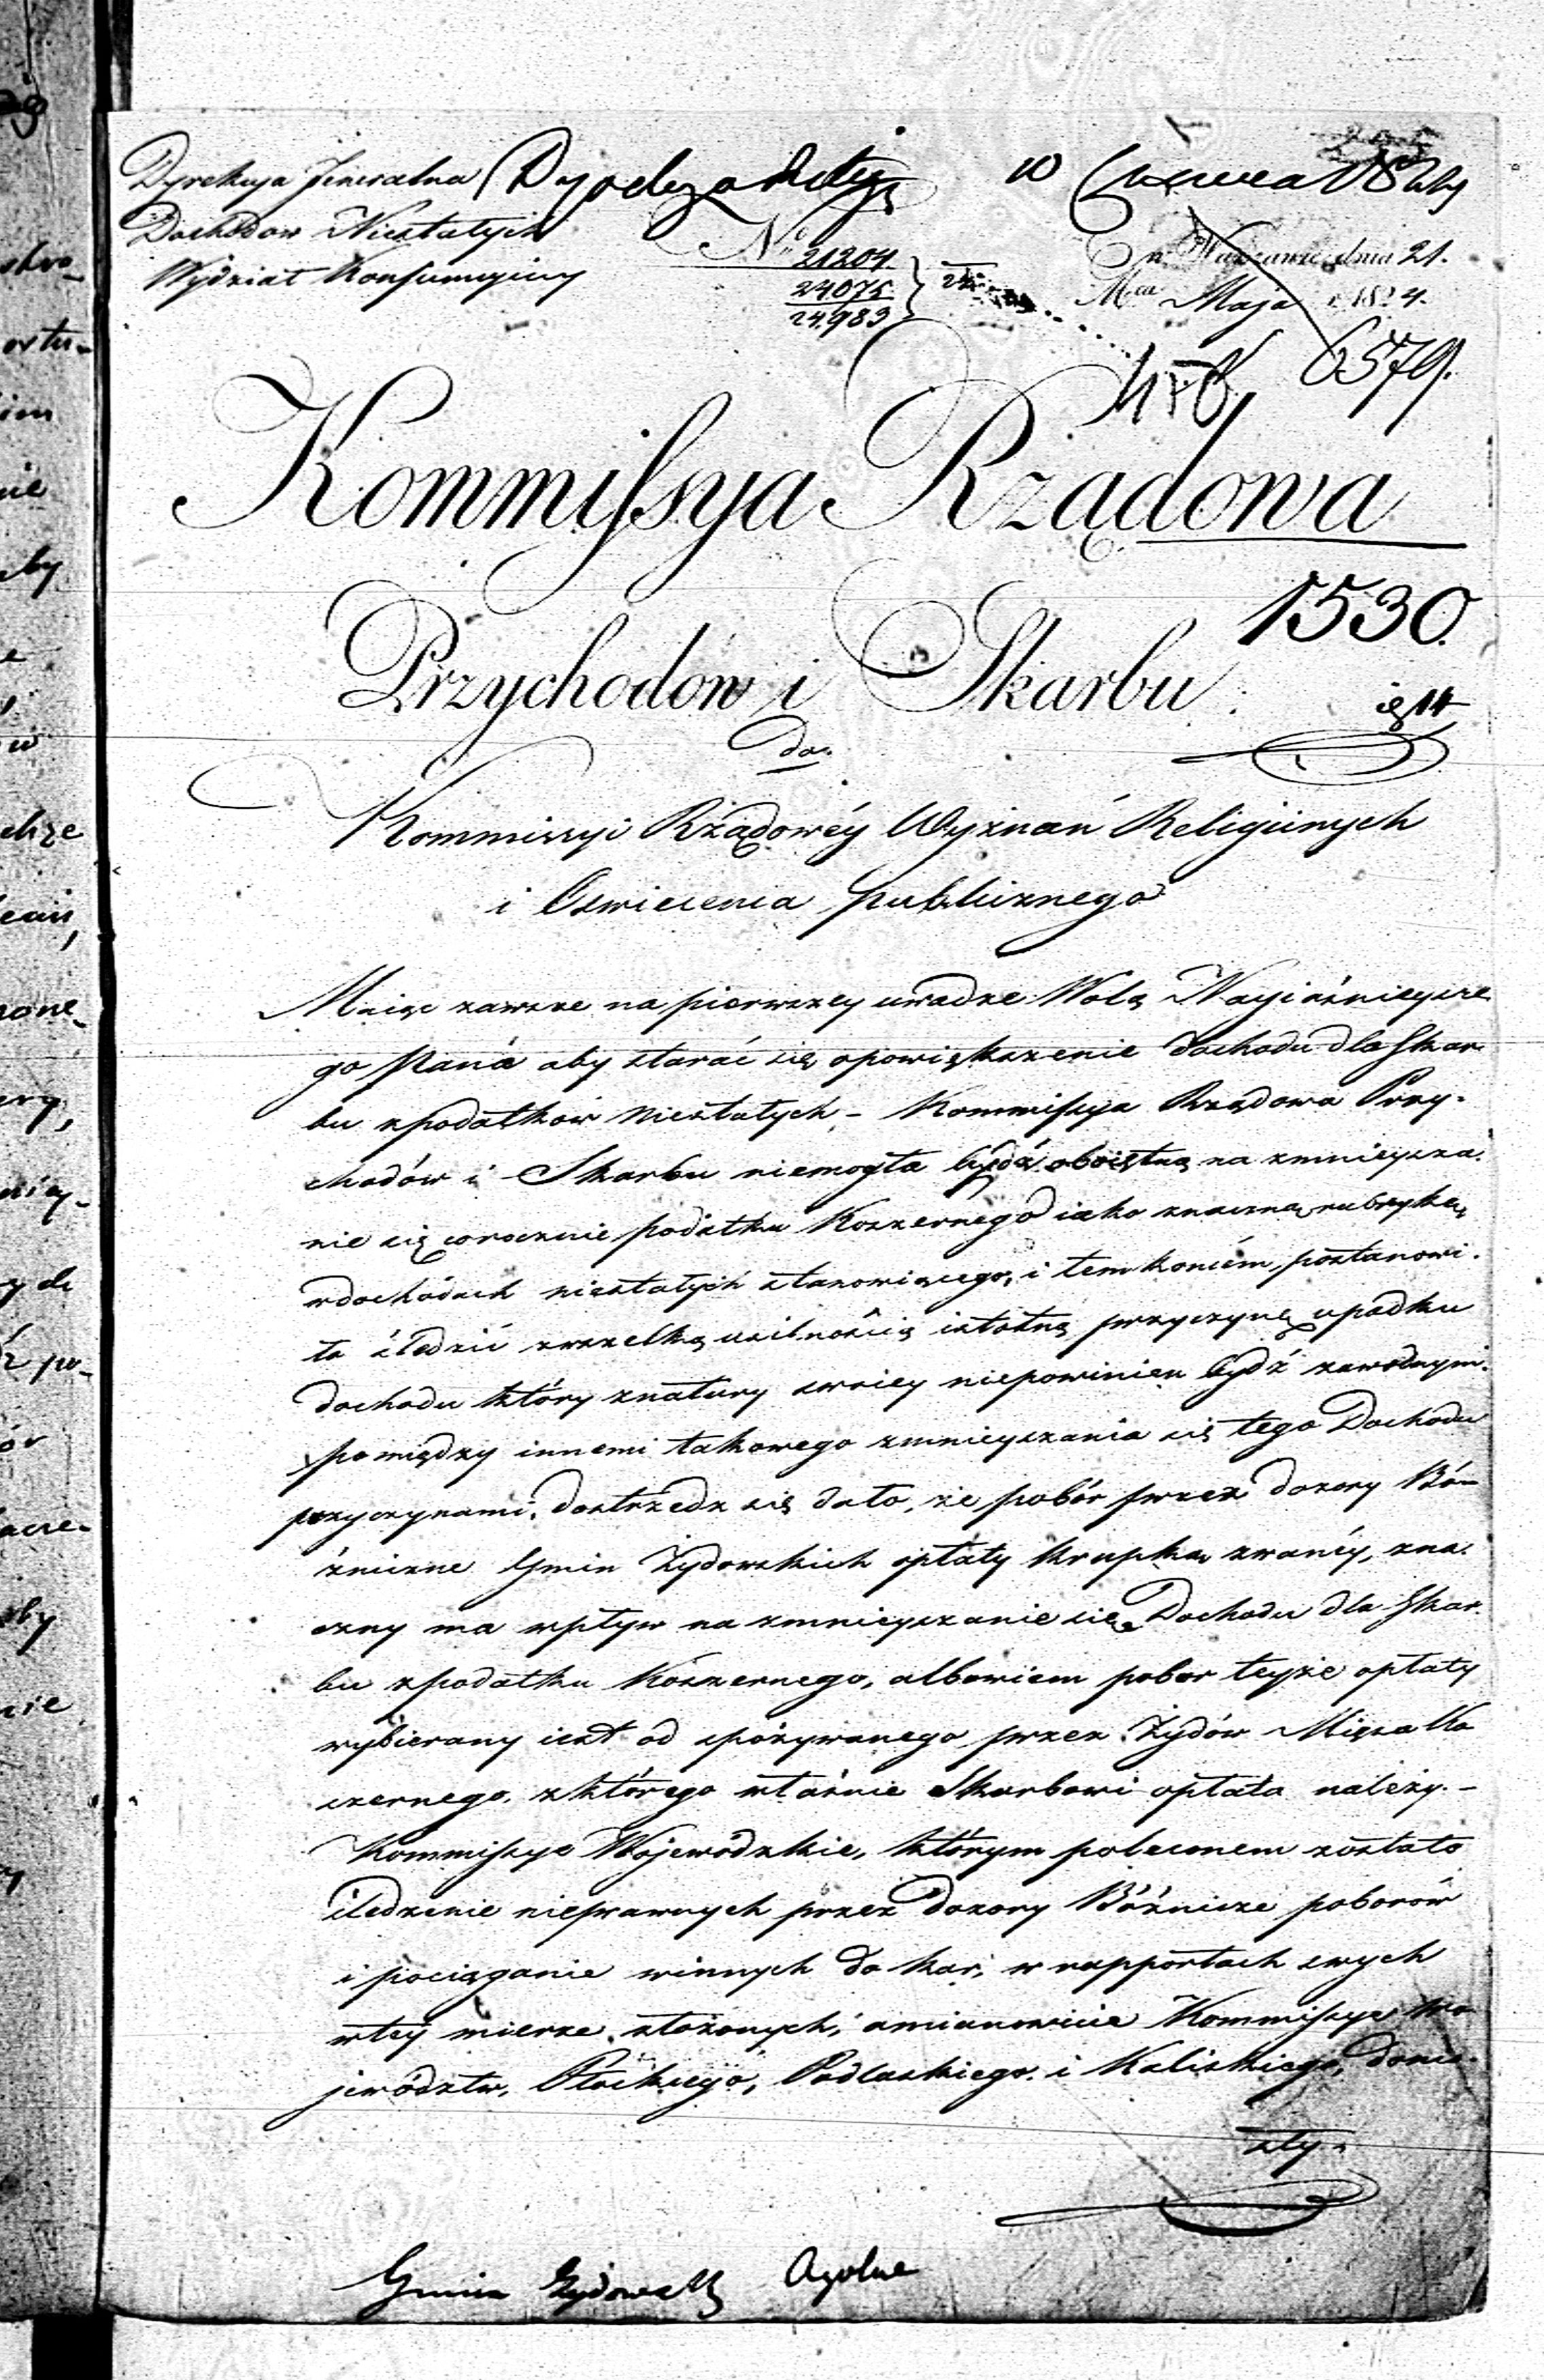 Dyrekcya Jeneralna
Dochodów Niestałych
Wydział Konsumcyiny
No 21204.
24075
24,983
w Warszawie dnia 21.
Mca Maja r. 1824.
6579.
Kommissya Rządowa
1530.
Przychodów i Skarbu
do
Kommissyi Rządowéy Wyznań Religiinych
i Oswiecenia publicznego
Maiąc zawsze na pierwszey uwadze Wolą Nayiaśnieysze
go Pana aby starać się opowiększenie dochodu dla Skar
bu zpodatków niestałych - Kommissya Rządowa Przy-
chodów i Skarbu niemogła bydź oboiętną na zmnieysza
nie się corocznie podatku Koszernego iako znaczną rubrykę
wdochodach niestałych stanowiącego, i tem końcem postanowi-
ła śledzić zwszelką usilnością istotną przyczynę upadku
dochodu który znatury swoiey niepowinien bydź zawodnym.
pomiędzy innemi takowego zmnieyszania się tego Dochodu
przyczynami, dostrzedz się dało, że pobór przez dozory Bó-
żnicze Gmin Żydowskich opłaty Krupką zwanéy, zna
czny ma wpływ na zmnieyszanie się Dochodu dla Skar
bu zpodatku Koszernego, albowiem pobor teyże opłaty
wybierany iest od spożywanego przez Żydów Mięsa Ko
szernego, zktórego właśnie Skarbowi opłata należy. -
Kommissye Wojewódzkie, którym poleconem zostało
śledzenie nieprawnych przez Dozory Bóżnicze poborów
i pociąganie winnych do kar, w rapportach swych
wtéy mierze złożonych, amianowicie Kommissye Wo
jewództw, Płockiego, Podlaskiego i Kaliskiego, donio
sły.
Gmin Żydowskich Ogólne